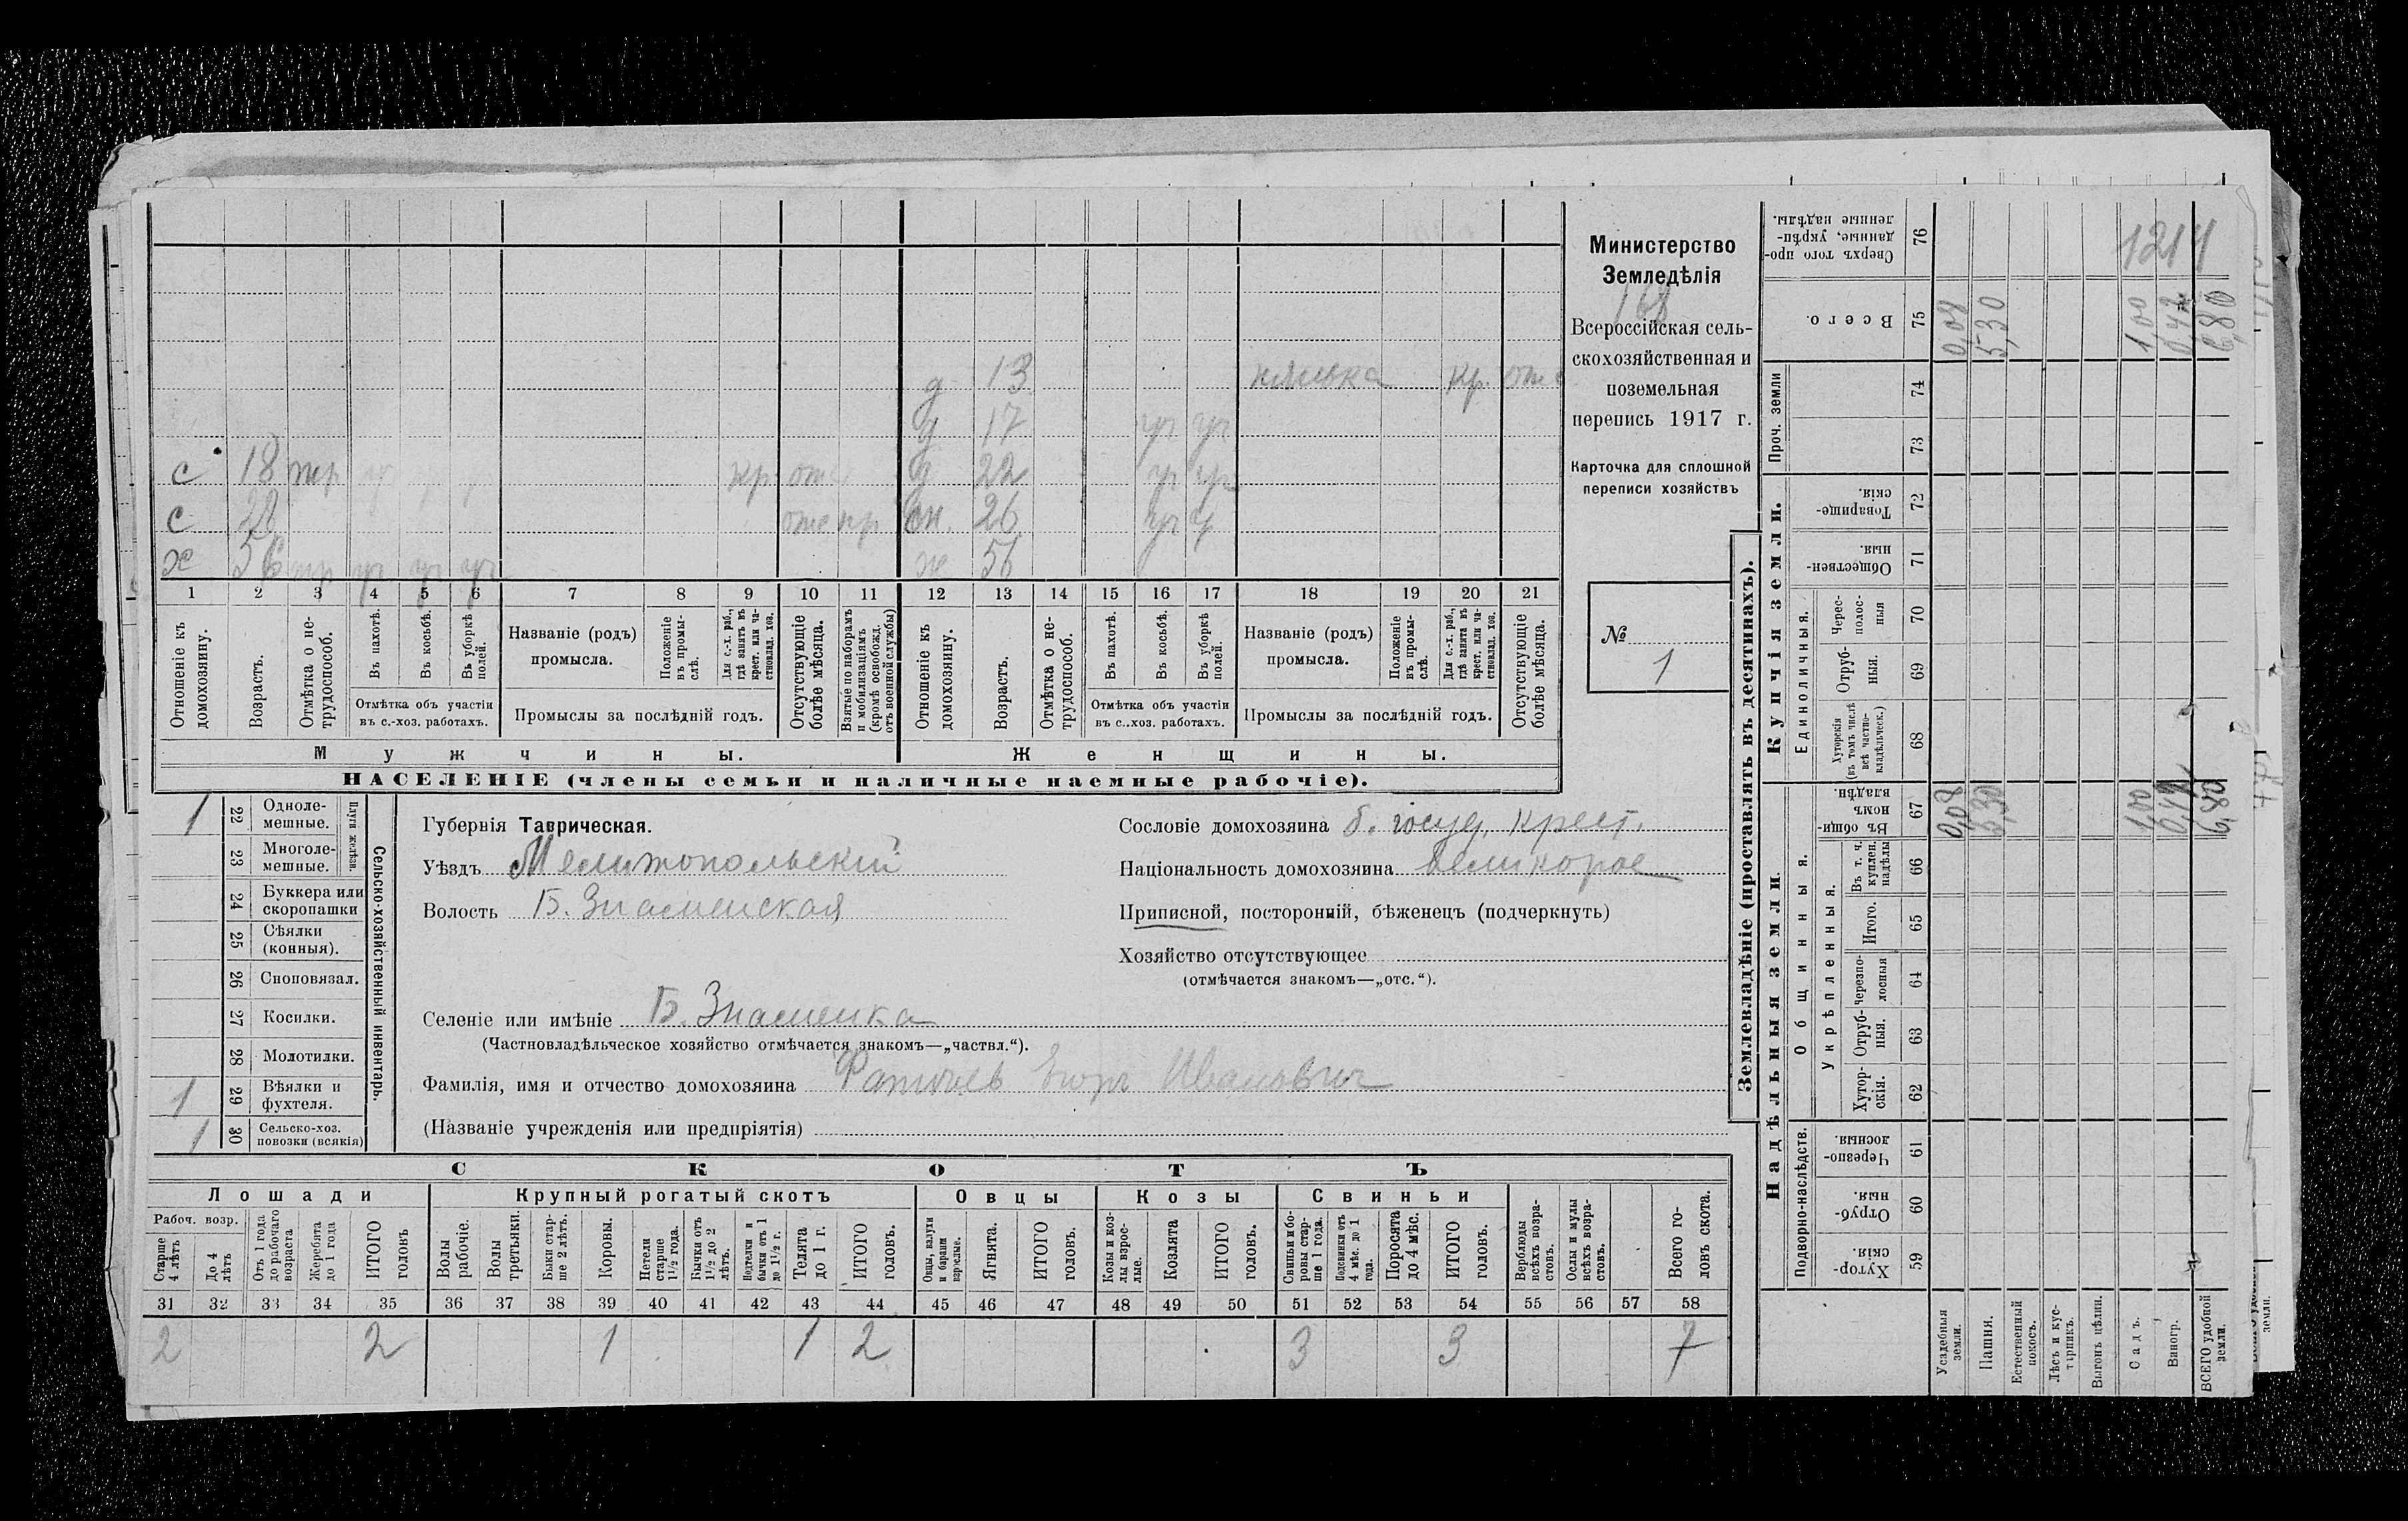 с 18 отс д 13 нянька кр. отс
д 17 уч уч
с 18 кр отс д 22 уч уч
с 28 отс сн. 26 уч у
х 56 уч уч уч ж 56
1 2 3 4 5 6 7 8 9 10 11 12 13 14 15 16 17 18 19 20 21
Отношеніе къ домохозяину.
Возрастъ.
Отмѣтка о не-трудоспособ.
Въ пахотѣ.
Въ косьбѣ.
Въ уборкѣ полей.
Отмѣтка объ участіи
въ с.-хоз. работахъ.
Названіе (родъ)
промысла.
Положеніе въ промы-слѣ.
Для с.-х. раб., гдѣ занятъ въ крест. или ча-стновлад. хоз.
Промыслы за послѣдній годъ.
Отсутствующіе болѣе мѣсяца.
Взятые по наборамъ и мобилизаціямъ (кромѣ освобожд. отъ военной службы)
Отношеніе къ домохозяину.
Возрастъ.
Отмѣтка о не-трудоспособ.
Въ пахотѣ.
Въ косьбѣ.
Въ уборкѣ полей.
Отмѣтка объ участіи
въ с..хоз. работахъ.
Названіе (родъ)
промысла.
Положеніе въ промы-слѣ.
Для с.-х. раб., гдѣ занята въ крест. или ча-стновлад. хоз.
Промыслы за послѣдній годъ.
Отсутствующіе болѣе мѣсяца.
Мужчины. Женщины.
НАСЕЛЕНІЕ (члены семьи и наличные наемные рабочіе).
Министерство
Земледѣлія
168
Всероссійская сель-
скохозяйственная и
поземельная
перепись 1917 г.
Карточка для сплошной
переписи хозяйствъ
№
1
1 22 Одноле-мешные.
23 Многоле-мешные.
Плуги желѣзн.
24 Буккера или скоропашки
25 Сѣялки (конныя).
26 Сноповязал.
27 Косилки.
28 Молотилки.
1 29 Вѣялки и фухтеля.
1 30 Сельско-хоз. повозки (всякія)
Сельско-хозяйственный инвентарь.
Губернія Таврическая.
Уѣздъ Мелитопольскій
Волость Б. Знаменская
Селеніе или имѣніе Б. Знаменка
(Частновладѣльческое хозяйство отмѣчается знакомъ—„частвл.“).
Фамилія, имя и отчество домохозяина Иванович
(Названіе учрежденія или предпріятія)
Сословіе домохозяина б. госуд. крест.
Національность домохозяина великорос
Приписной, посторонній, бѣженецъ (подчеркнуть)
Хозяйство отсутствующее
(отмѣчается знакомъ—„отс.“).
СКОТЪ
Лошади Крупный рогатый скотъ Овцы Козы Свиньи
Рабоч. возр.
Старше 4 лѣтъ
До 4 лѣтъ
Отъ 1 года до рабочаго возраста
Жеребята до 1 года
ИТОГО головъ
Волы рабочіе.
Волы третьяки.
Быки стар-ше 2 лѣтъ.
Коровы.
Нетели старше 1½ года.
Бычки отъ 1½ до 2 лѣтъ.
Подтелки и бычки отъ 1 до 1½ г.
Телята до 1 г.
ИТОГО головъ.
Овцы, валухи и бараны взрослые.
Ягнята.
ИТОГО головъ.
Козы и коз-лы взрос-лые.
Козлята
ИТОГО головъ.
Свиньи и бо-ровы стар-ше 1 года.
Подсвинки отъ 4 мѣс. до 1 года.
Поросята до 4 мѣс.
ИТОГО головъ.
Верблюды всѣхъ возра-стовъ.
Ослы и мулы всѣхъ возра-стовъ.
Всего го-ловъ скота.
31 32 33 34 35 36 37 38 39 40 41 42 43 44 45 46 47 48 49 50 51 52 53 54 55 56 57 58
2 2 1 1 2 3 3 7
Землевладѣніе (проставлять въ десятинахъ).
Надѣльныя земли. Купчія земли. Проч. земли
Подворно-наслѣдств. Общинныя. Единоличныя.
Укрѣпленныя.
Хутор-скія. 59
Отруб-ныя. 60
Черезпо-лосныя. 61
Хутор-скія. 62
Отруб-ныя. 63
Черезпо-лосныя 64
Итого. 65
Въ т. ч. куплен. надѣлы 66
Въ общин-номъ владѣн. 67
Хуторскія (въ томъ числѣ всѣ частно-владѣльческ.) 68
Отруб-ныя. 69
Черес-полос-ныя 70
Обществен-ныя. 71
Товарище-скія. 72
73
74
Всего. 75
Сверхъ того про-данные, укрѣп-ленные надѣлы. 76
Усадебныя земли. 0,08 0,08
Пашня. 5,30 5,30
Естественный покосъ.
Лѣсъ и кус-тарникъ.
Выгонъ цѣлин.
Садъ. 1,00 1,00
Виногр. 0,42 0,42
ВСЕГО удобной земли. 6,80 6,80
1214
земли.